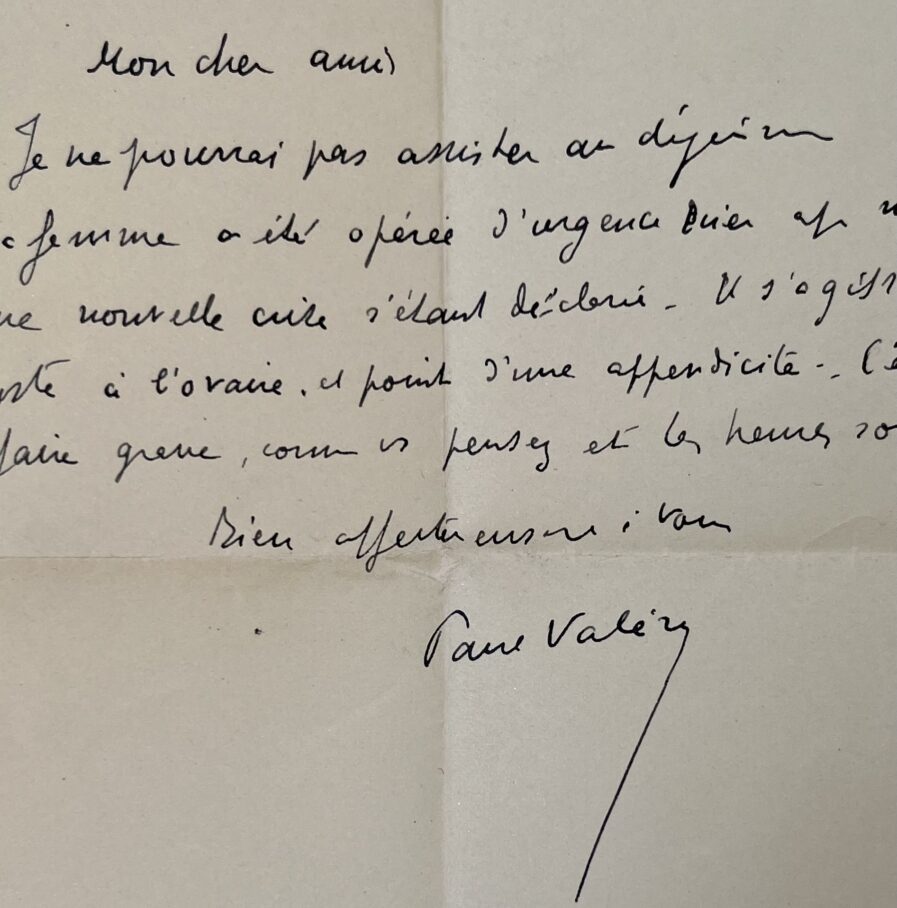 Mon cher ami
Je ne pourrai pas assister au déjeuner
femme a été opérée d'urgence hier
nouvelle crise s'étant déclarée - Il s'agiss
yste à l'ovaire, et point d'une appendicite - C'é
faire grave, comme vs pensez et les heures so
Bien affectueusement à vous
Paul Valéry